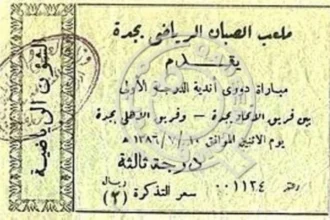 ملعب الصبان الرياضي بجدة
يقدم
مباراة دوري أندية الدرجة الأولى
بين فريق الاتحاد بجدة — وفريق الاهلي بجدة
يوم الاثنين الموافق ١٠ / ٧ / ١٣٨٦ هـ
درجة ثالثة
رقم ٠٠١١٢٤ سعر التذكرة (٢) ريال
الشئون الرياضية